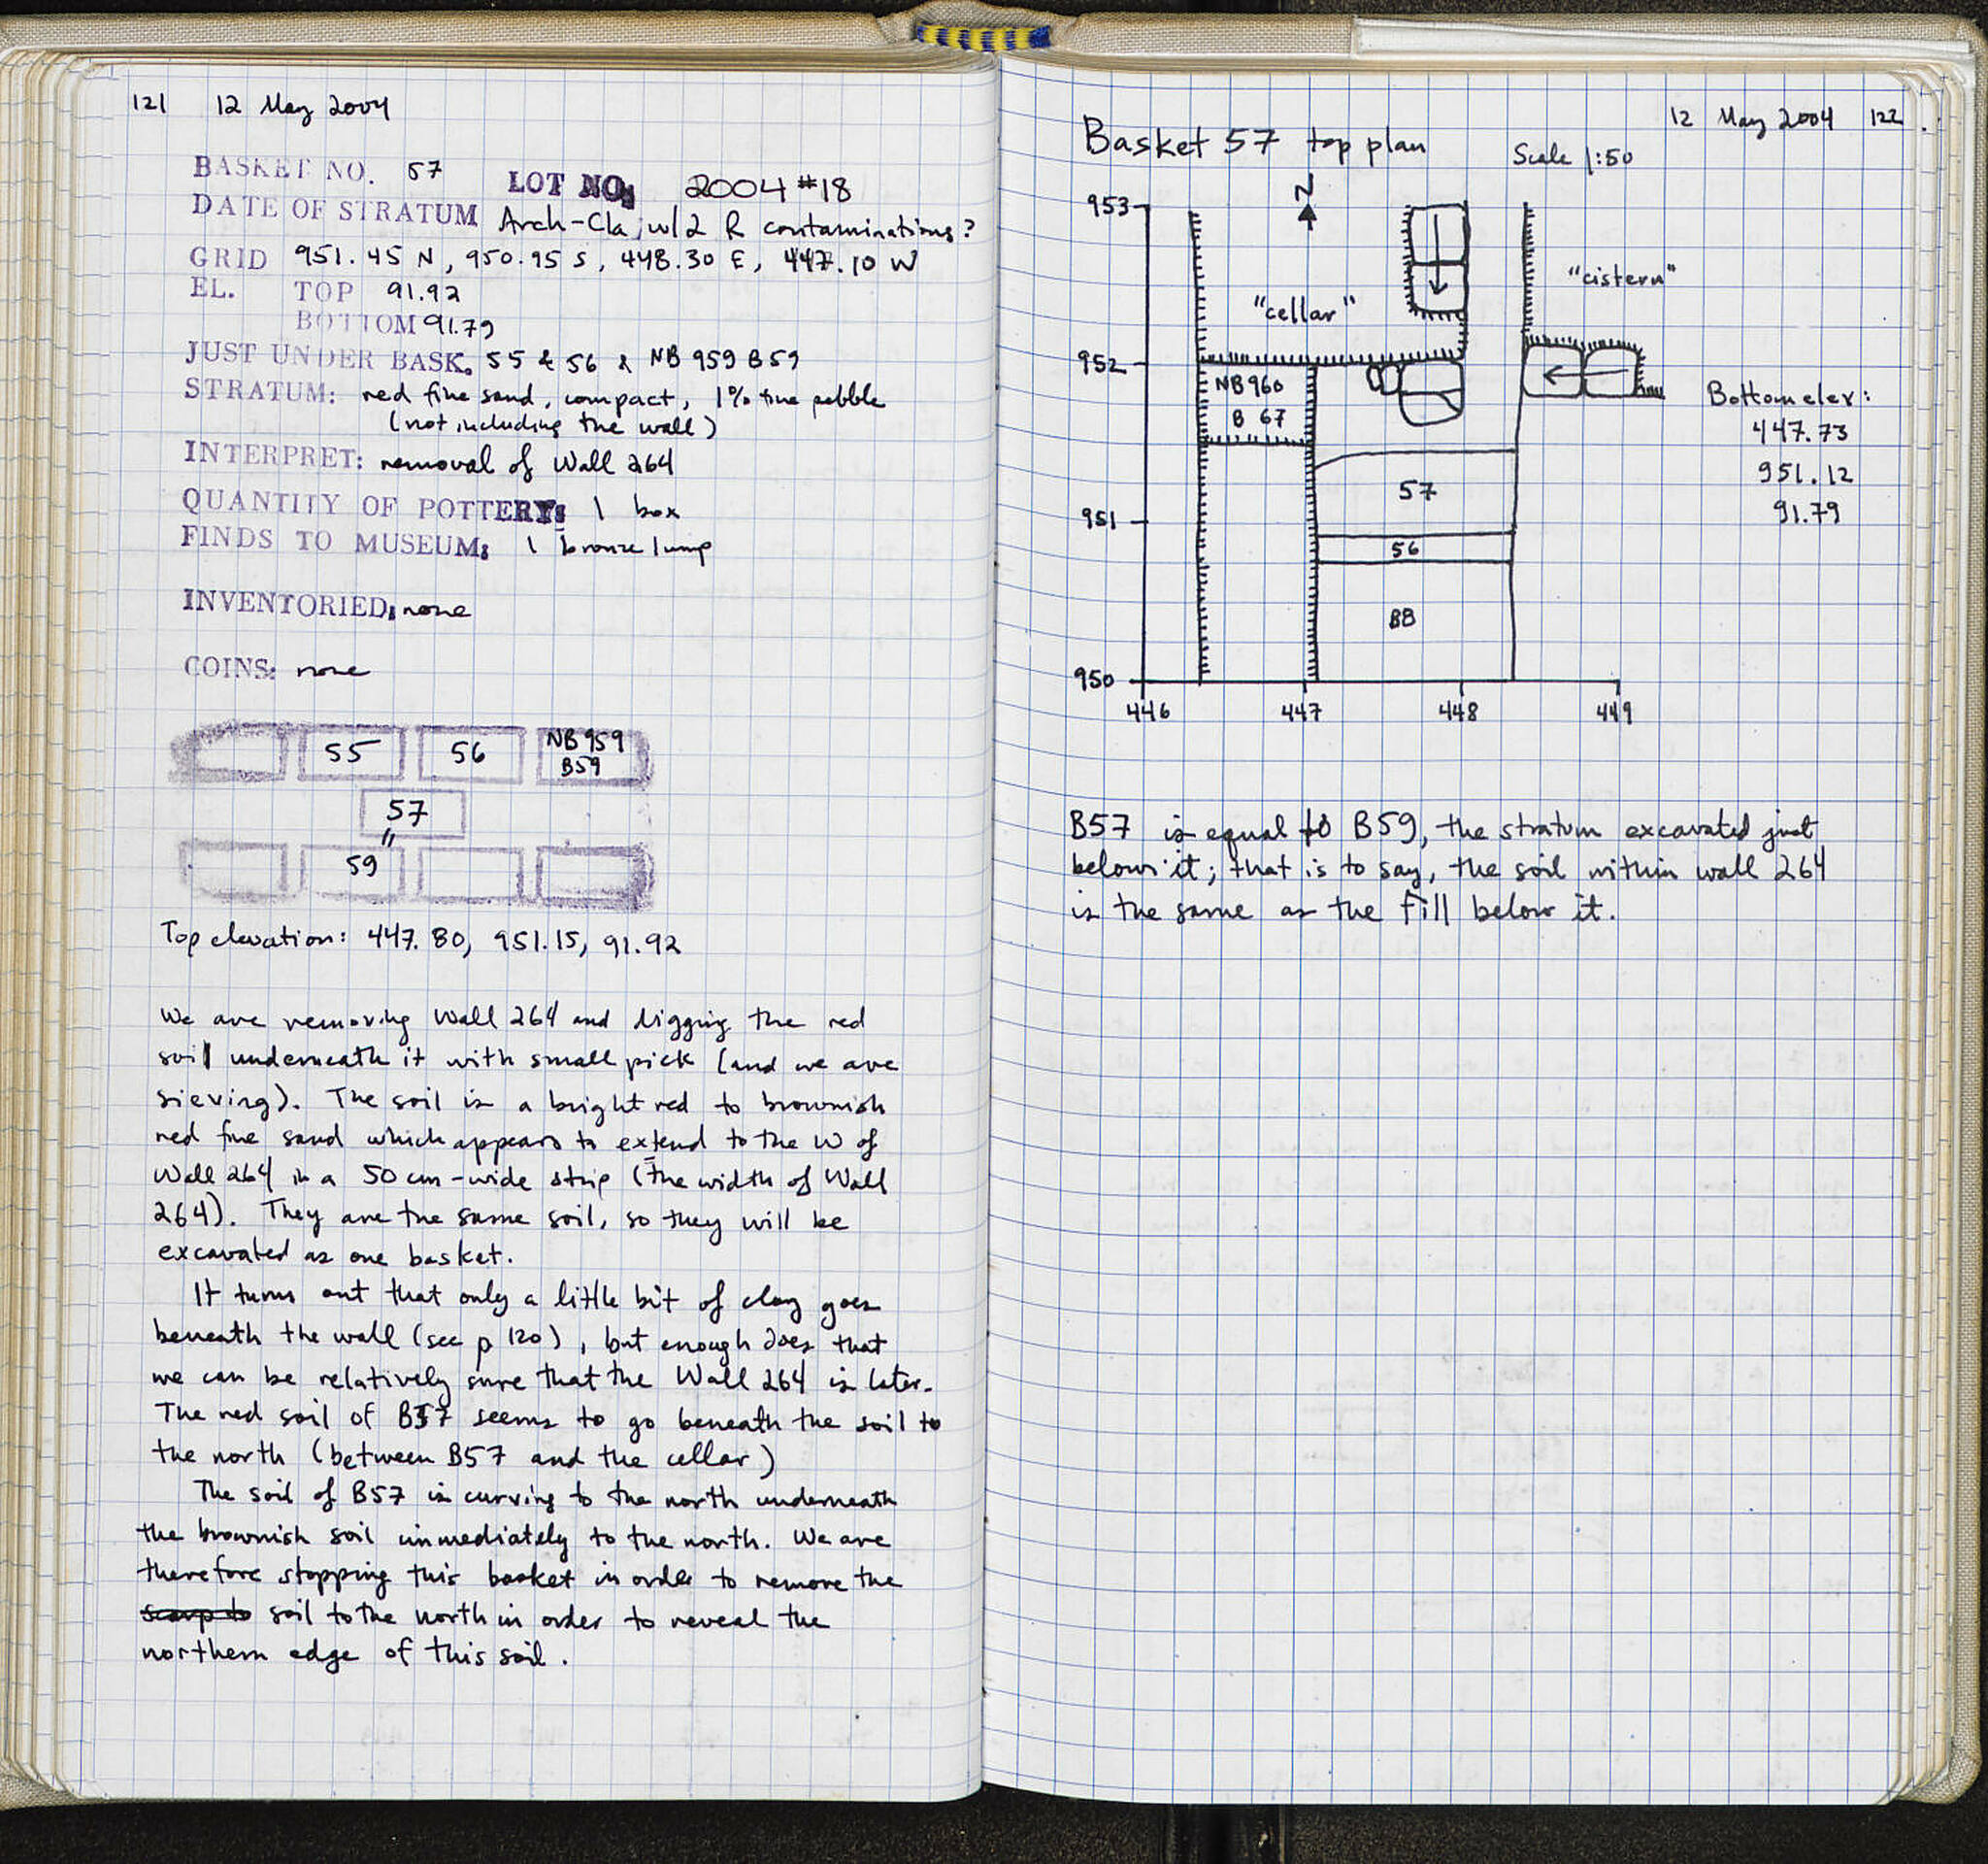 121 12 May 2004
BASKET NO. 57 LOT NO. 2004 #18
DATE OF STRATUM Arch-Cla, w/2 R contaminations?
GRID 951.45 N, 950.95 S, 448.30 E, 447.10 W
EL. TOP 91.92
BOTTOM 91.79
JUST UNDER BASK. 55 & 56 & NB 959 B59
STRATUM: red fine sand, compact, 1% fine pebble
(not including the wall)
INTERPRET: removal of Wall 264
QUANTITY OF POTTERY: 1 box
FINDS TO MUSEUM: 1 bronze lump
INVENTORIED: none
COINS: none
55 56 NB 959
B59
57
"
59
Top elevation: 447.80, 951.15, 91.92
We are removing Wall 264 and digging the red
soil underneath it with small pick (and we are
sieving). The soil is a bright red to brownish
red fine sand which appears to extend to the W of
Wall 264 in a 50 cm-wide strip (the width of Wall
264). They are the same soil, so they will be
excavated as one basket.
It turns out that only a little bit of clay goes
beneath the wall (see p 120), but enough does that
we can be relatively sure that the Wall 264 is later.
The red soil of B57 seems to go beneath the soil to
the north (between B57 and the cellar)
The soil of B57 is curving to the north underneath
the brownish soil immediately to the north. We are
therefore stopping this basket in order to remove the
scarp to soil to the north in order to reveal the
northern edge of this soil.
12 May 2004 122
Basket 57 top plan Scale 1:50
N
953
"cistern"
"cellar"
952
NB 960
B 67
Bottom elev:
447.73
951.12
91.79
57
951
56
88
950
446 447 448 449
B57 is equal to B59, the stratum excavated just
below it; that is to say, the soil within wall 264
is the same as the fill below it.